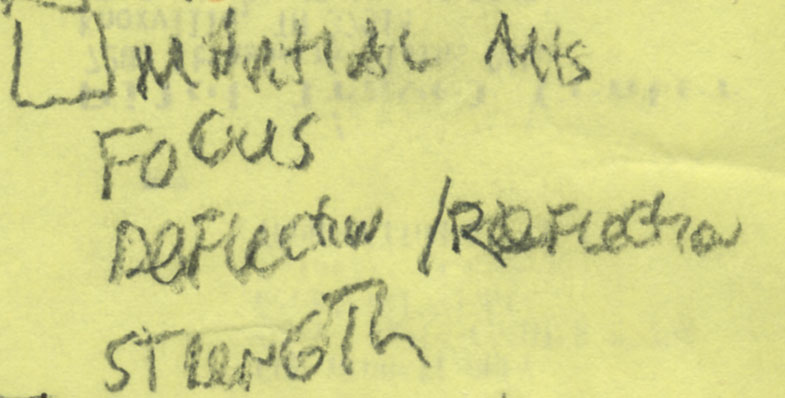 MARTIAL ARTS
FOCUS
DEFLECTION / REFLECTION
STRENGTH